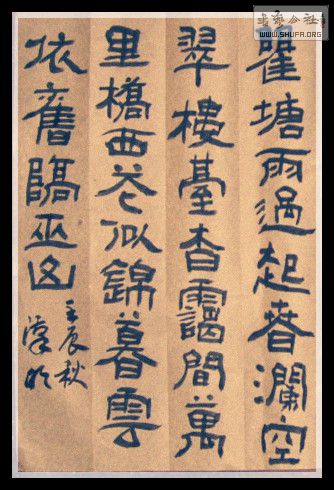 瞿塘雨過起春瀾空
翠樓臺杳靄間萬
里橋西花似錦暮雲
依舊臨巫山
壬辰秋
WWW.SHUFA.ORG